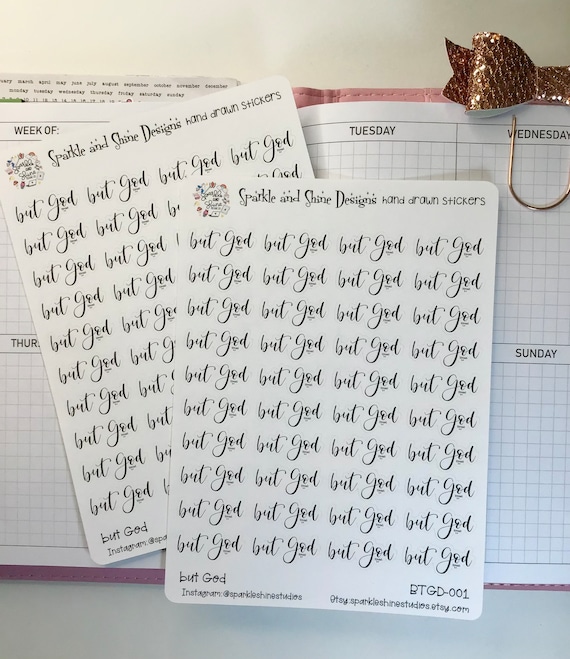 march april may june july august september october november december
monday tuesday wednesday thursday friday saturday sunday
WEEK OF:
TUESDAY
WEDNESDAY
THURS
SUNDAY
Sparkle and Shine Designs hand drawn stickers
but God but God but God but God
but God but God
but God but God
but God but God
but God but God
but God but God
but God but
but God but
but God but
but God
but God
Instagram:@sparkleshinestudios
Sparkle and Shine Designs hand drawn stickers
but God but God but God but God
but God but God but God but God
but God but God but God but God
but God but God but God but God
but God but God but God but God
but God but God but God but God
but God but God but God but God
but God but God but God but God
but God but God but God but God
but God but God but God but God
but God BTGD-001
Instagram:@sparkleshinestudios Etsy:sparkleshinestudios.etsy.com